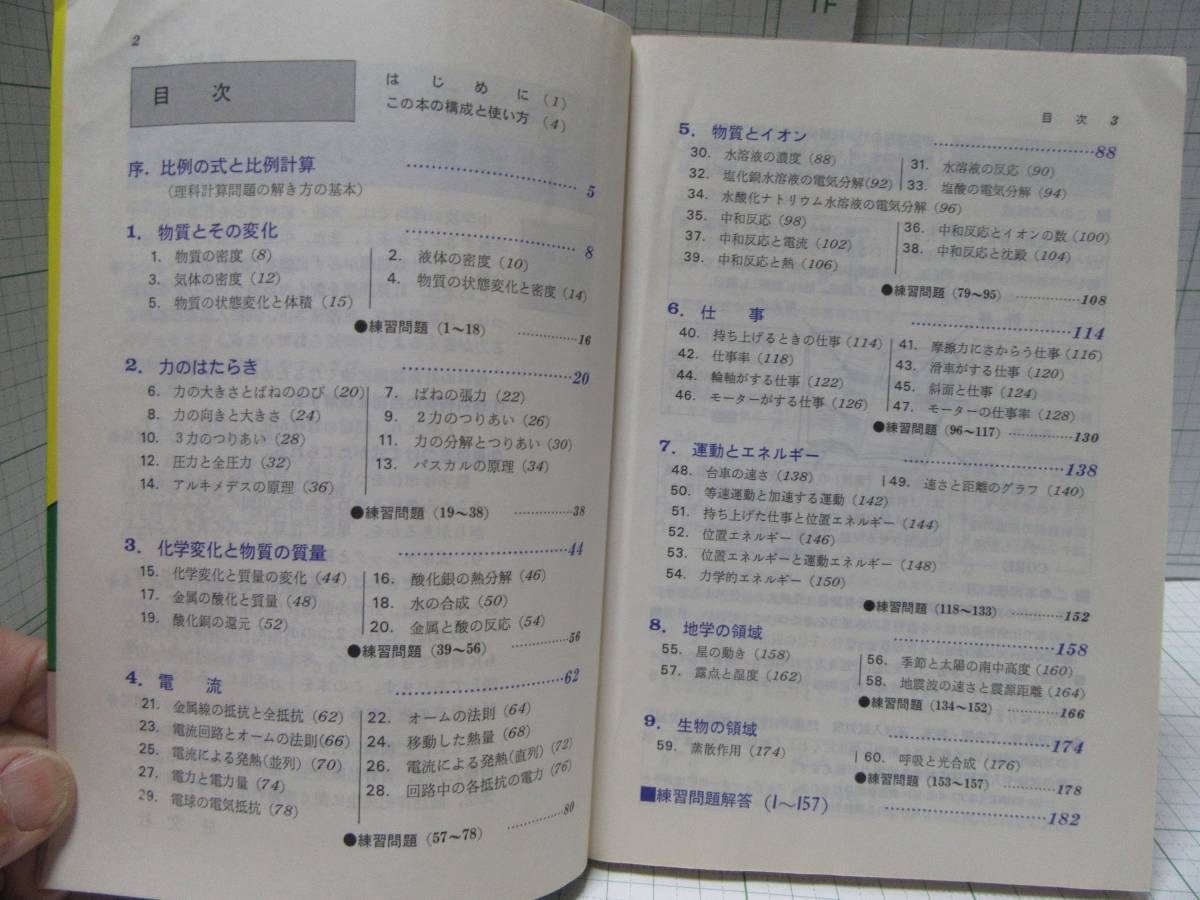 1F
2
目　次
はじめに (1)
この本の構成と使い方 (4)
序. 比例の式と比例計算 5
(理科計算問題の解き方の基本)
1. 物質とその変化 8
1. 物質の密度 (8)
2. 液体の密度 (10)
3. 気体の密度 (12)
4. 物質の状態変化と密度 (14)
5. 物質の状態変化と体積 (15)
●練習問題 (1〜18) 16
2. 力のはたらき 20
6. 力の大きさとばねののび (20)
7. ばねの張力 (22)
8. 力の向きと大きさ (24)
9. 2力のつりあい (26)
10. 3力のつりあい (28)
11. 力の分解とつりあい (30)
12. 圧力と全圧力 (32)
13. パスカルの原理 (34)
14. アルキメデスの原理 (36)
●練習問題 (19〜38) 38
3. 化学変化と物質の質量 44
15. 化学変化と質量の変化 (44)
16. 酸化銀の熱分解 (46)
17. 金属の酸化と質量 (48)
18. 水の合成 (50)
19. 酸化銅の還元 (52)
20. 金属と酸の反応 (54)
●練習問題 (39〜56) 56
4. 電　流 62
21. 金属線の抵抗と全抵抗 (62)
22. オームの法則 (64)
23. 電流回路とオームの法則 (66)
24. 移動した熱量 (68)
25. 電流による発熱(並列) (70)
26. 電流による発熱(直列) (72)
27. 電力と電力量 (74)
28. 回路中の各抵抗の電力 (76)
29. 電球の電気抵抗 (78)
●練習問題 (57〜78) 80
目　次 3
5. 物質とイオン 88
30. 水溶液の濃度 (88)
31. 水溶液の反応 (90)
32. 塩化銅水溶液の電気分解 (92)
33. 塩酸の電気分解 (94)
34. 水酸化ナトリウム水溶液の電気分解 (96)
35. 中和反応 (98)
36. 中和反応とイオンの数 (100)
37. 中和反応と電流 (102)
38. 中和反応と沈殿 (104)
39. 中和反応と熱 (106)
●練習問題 (79〜95) 108
6. 仕　事 114
40. 持ち上げるときの仕事 (114)
41. 摩擦力にさからう仕事 (116)
42. 仕事率 (118)
43. 滑車がする仕事 (120)
44. 輪軸がする仕事 (122)
45. 斜面と仕事 (124)
46. モーターがする仕事 (126)
47. モーターの仕事率 (128)
●練習問題 (96〜117) 130
7. 運動とエネルギー 138
48. 台車の速さ (138)
49. 速さと距離のグラフ (140)
50. 等速運動と加速する運動 (142)
51. 持ち上げた仕事と位置エネルギー (144)
52. 位置エネルギー (146)
53. 位置エネルギーと運動エネルギー (148)
54. 力学的エネルギー (150)
●練習問題 (118〜133) 152
8. 地学の領域 158
55. 星の動き (158)
56. 季節と太陽の南中高度 (160)
57. 露点と湿度 (162)
58. 地震波の速さと震源距離 (164)
●練習問題 (134〜152) 166
9. 生物の領域 174
59. 蒸散作用 (174)
60. 呼吸と光合成 (176)
●練習問題 (153〜157) 178
■練習問題解答 (1〜157) 182